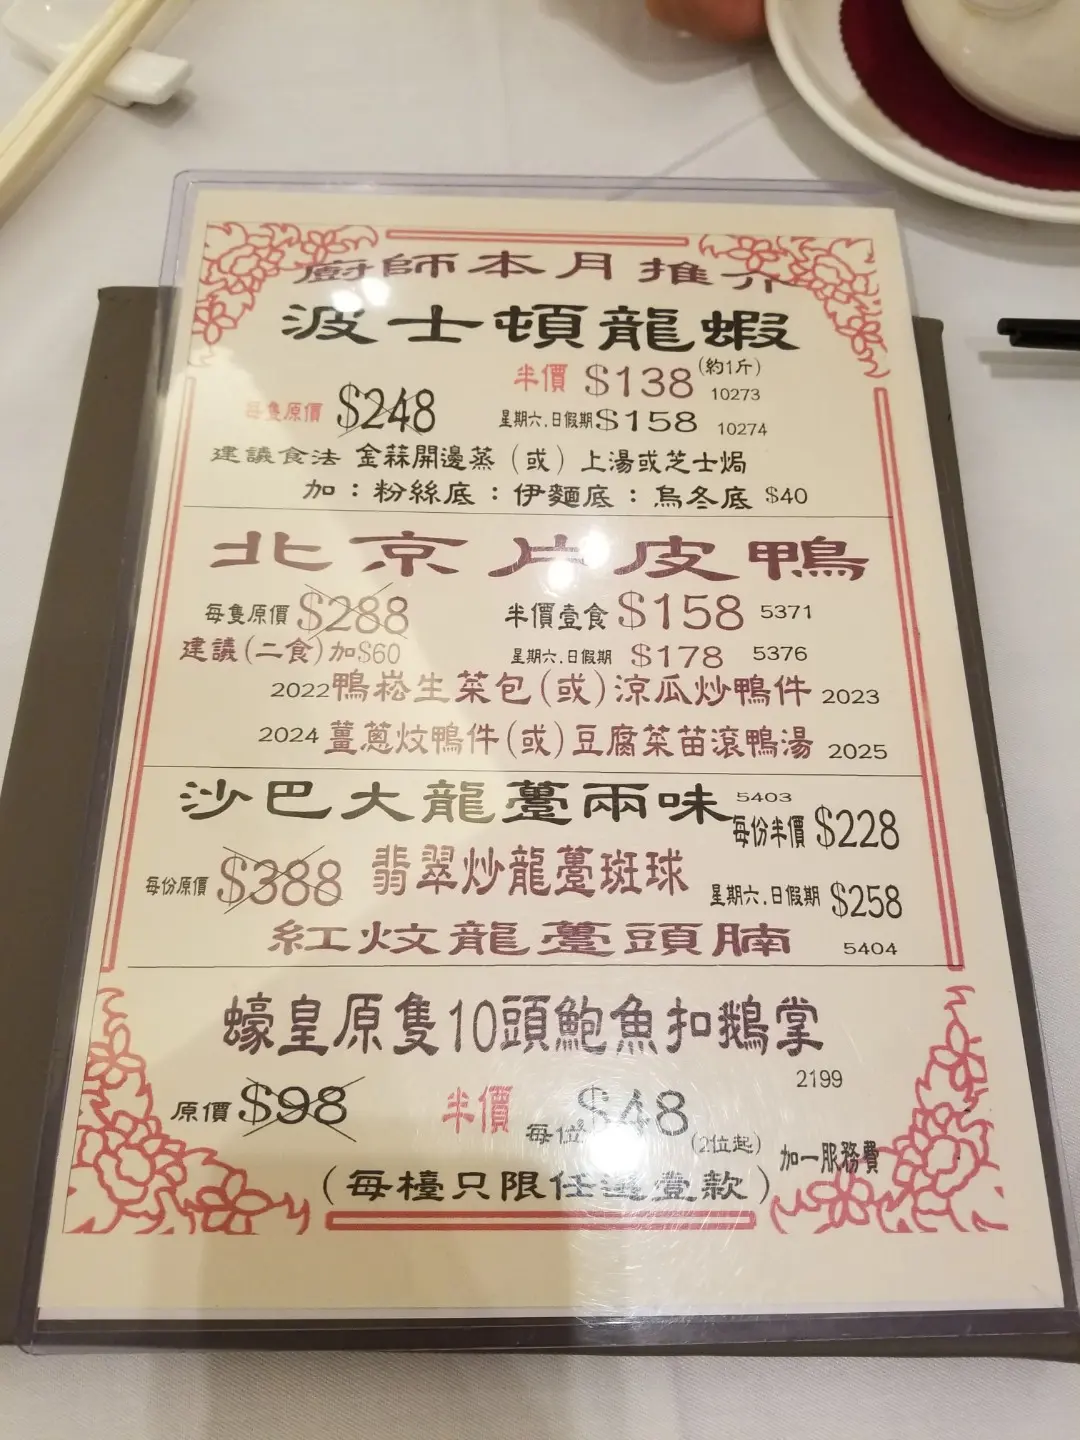 廚師本月推介
波士頓龍蝦
半價 $138 (約1斤) 10273
每隻原價 $248 星期六.日假期 $158 10274
建議食法 金蒜開邊蒸 (或) 上湯或芝士焗
加：粉絲底：伊麵底：烏冬底 $40
北京片皮鴨
每隻原價 $288 半價壹食 $158 5371
建議(二食)加$60 星期六.日假期 $178 5376
2022 鴨崧生菜包(或)涼瓜炒鴨件 2023
2024 薑蔥炆鴨件(或)豆腐菜苗滾鴨湯 2025
沙巴大龍躉兩味 5403
每份半價 $228
每份原價 $388 翡翠炒龍躉斑球
星期六.日假期 $258
紅炆龍躉頭腩 5404
蠔皇原隻10頭鮑魚扣鵝掌
2199
原價 $98 半價 每位 $48 (2位起) 加一服務費
(每檯只限任選壹款)